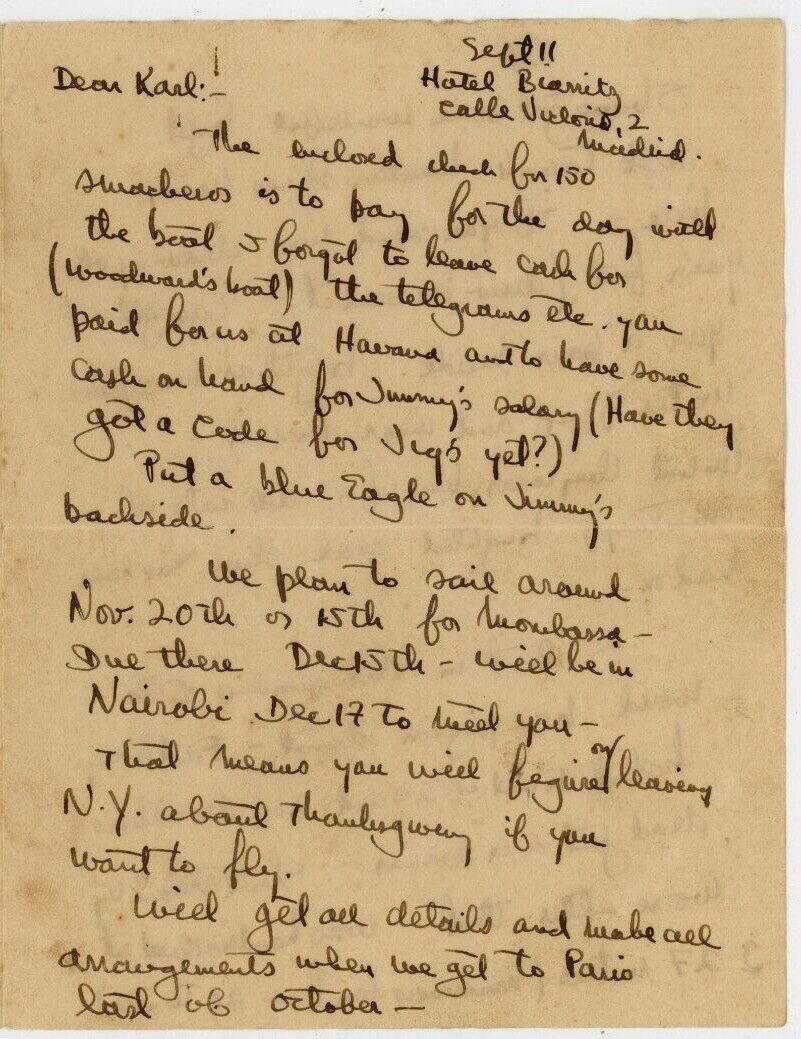 Sept 11
Hotel Biarritz
Calle Victoria, 2
Madrid.
Dear Karl:—
The enclosed check for 150
smackeros is to pay for the day with
the boat I forgot to leave cash for
(Woodward's boat) the telegrams etc. you
paid for us at Havana and to have some
cash on hand for Jimmy's salary (Have they
got a code for Jigs yet?)
Put a blue Eagle on Jimmy's
backside.
We plan to sail around
Nov. 20th or 15th for Mombassa —
Due there Dec 15th — will be in
Nairobi Dec 17 to meet you —
That means you will figure on leaving
N.Y. about Thanksgiving if you
want to fly.
Will get all details and make all
arrangements when we get to Paris
last of October —